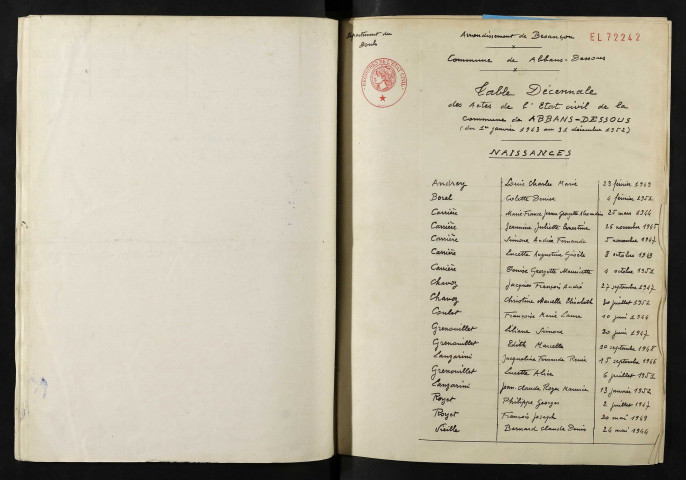 Département du
Doubs
Arrondissement de Besançon
EL 72242
Commune de Abbans-Dessous
Table Décennale
des Actes de l'Etat civil de la
Commune de ABBANS-DESSOUS
(du 1er janvier 1943 au 31 décembre 1952)
NAISSANCES
Andrey Louis Charles Marie 23 février 1949
Borel Colette Denise 4 février 1952
Carrière Marie France Jeanne Georgette 25 mars 1944
Carrière Jeannine Juliette Ernestine 26 novembre 1945
Carrière Simone Andrée Fernande 5 novembre 1947
Carrière Lucette Augustine Gisèle 8 octobre 1949
Carrière Denise Georgette 4 octobre 1952
Chavoz Jacques François André 27 septembre 1947
Chavoz Christine Marcelle Elisabeth 30 juillet 1952
Coulet Françoise Marie Laure 10 juin 1944
Grenouillet Liliane Simone 20 juin 1947
Grenouillet Edith Marcelle 20 septembre 1948
Lanzarini Jacqueline Fernande Renée 15 septembre 1946
Grenouillet Lucette Alice 6 juillet 1952
Lanzarini Jean-Claude Roger Maurice 13 janvier 1952
Royet Philippe Georges 2 juillet 1947
Royet François Joseph 20 mai 1949
Vieille Bernard Claude Denis 24 mai 1944